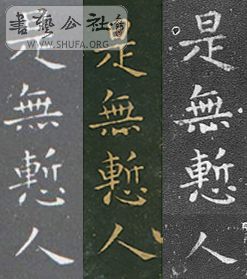 書藝公社
WWW.SHUFA.ORG
是無慙人
是無慙人
是無慙人